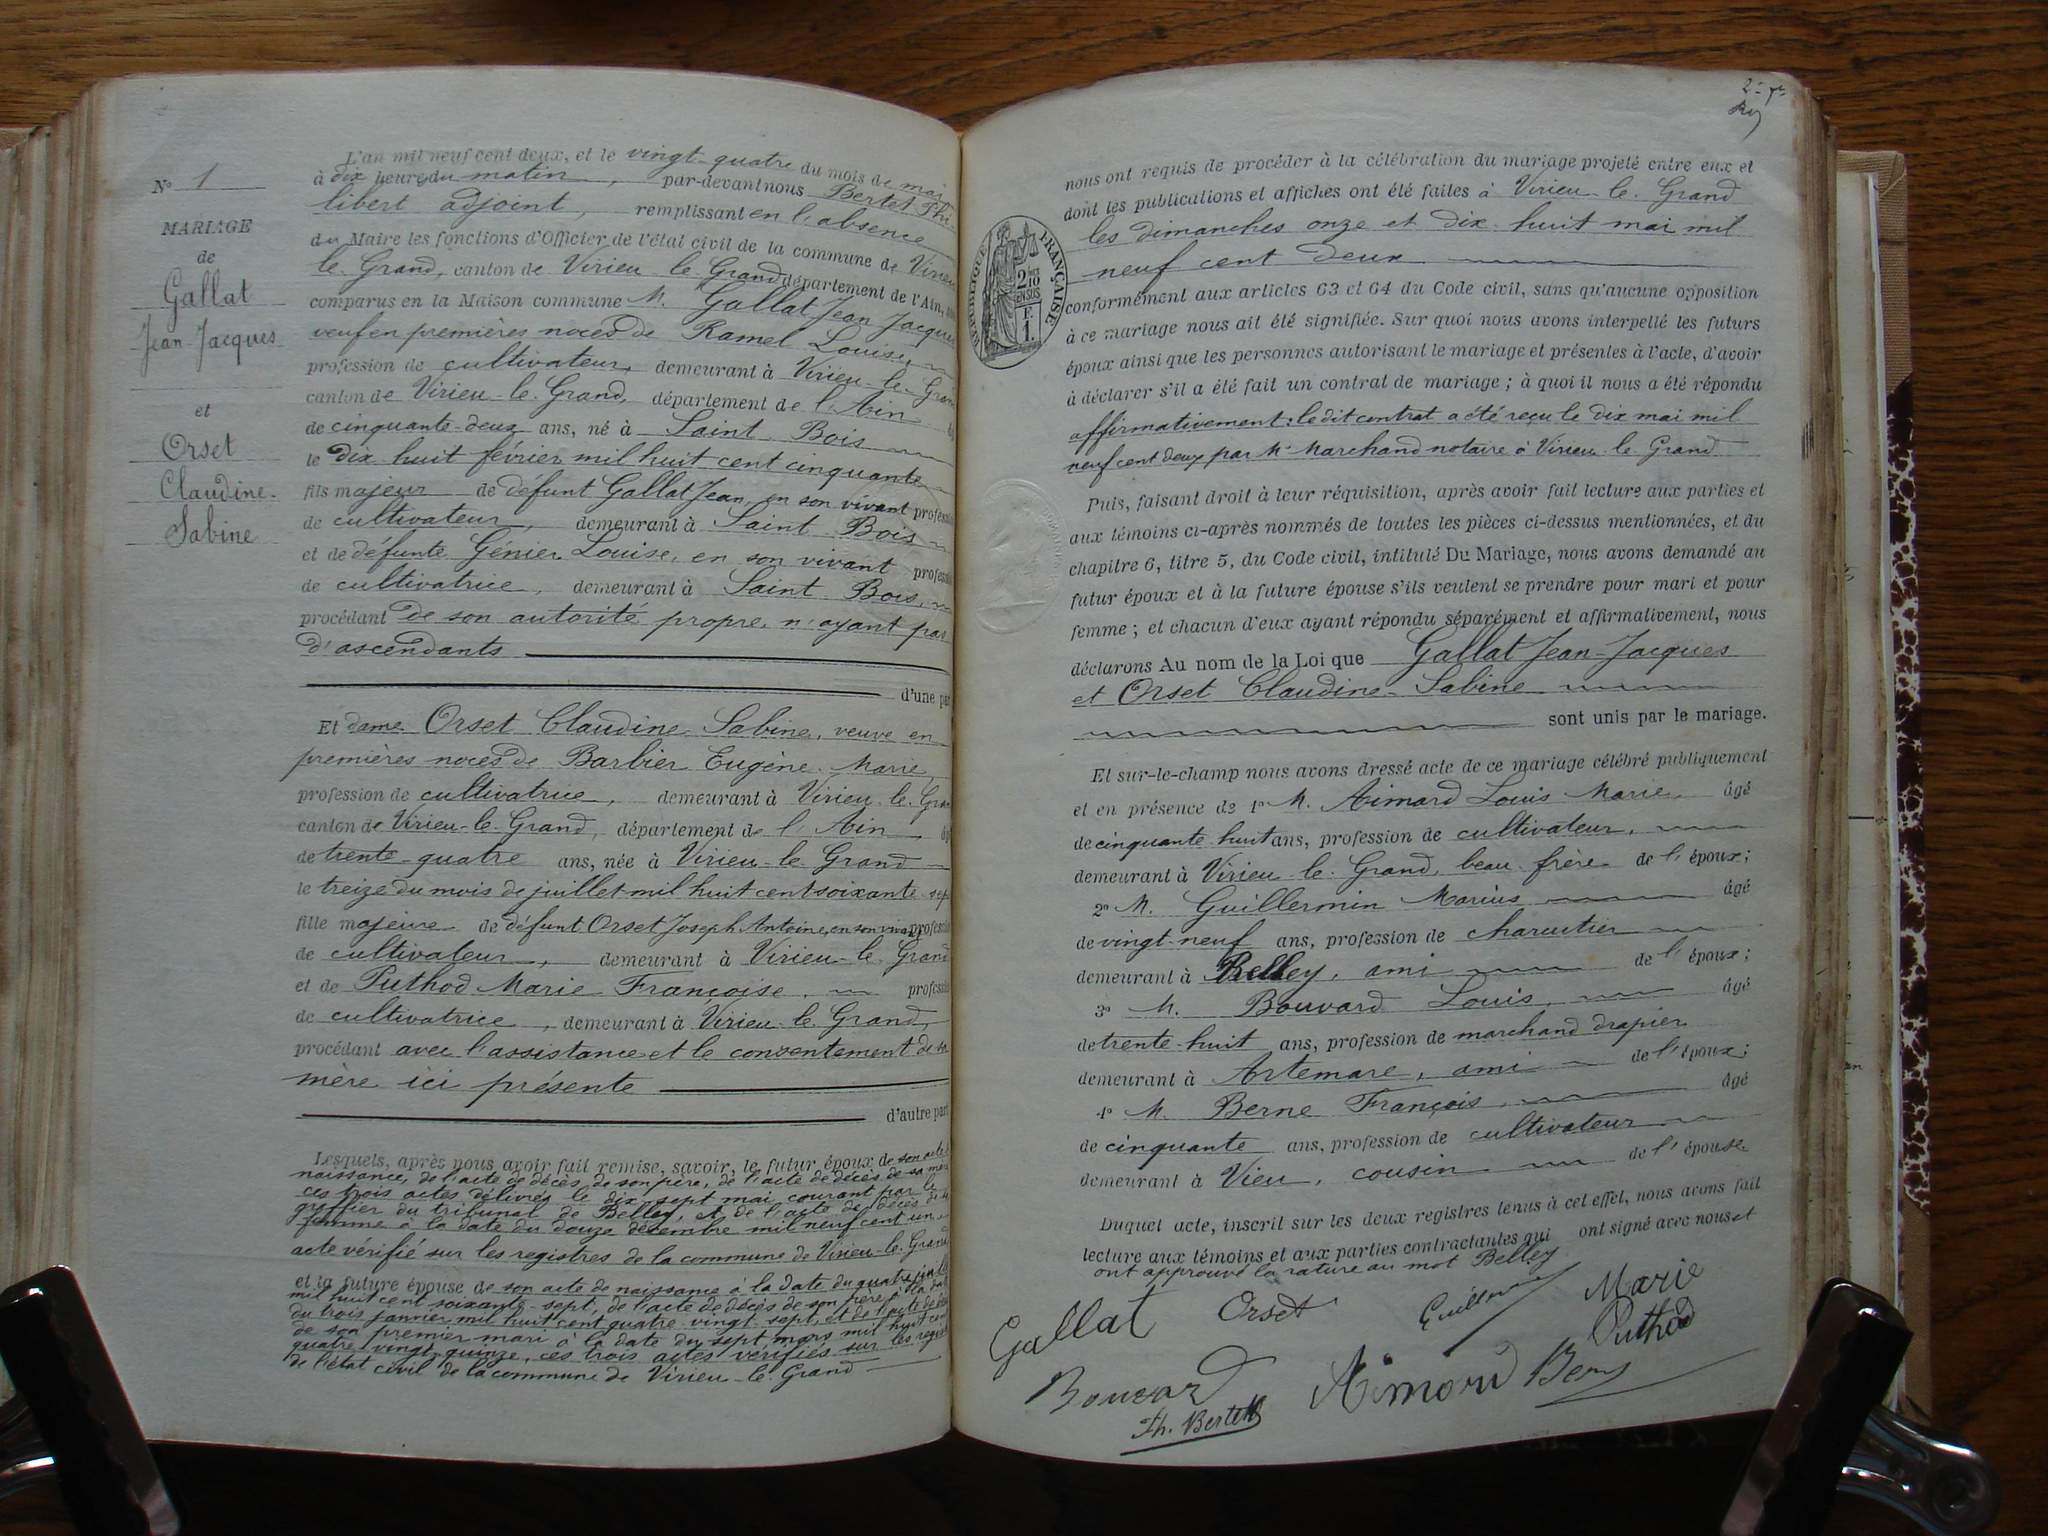 N° 1
MARIAGE
de
Gallat
Jean-Jacques
et
Orset
Claudine-
Sabine
L'an mil neuf cent deux, et le vingt-quatre du mois de mai
à dix heures du matin, par-devant nous Bertet Phi-
libert adjoint, remplissant en l'absence
du Maire les fonctions d'Officier de l'état civil de la commune de Virieu
le-Grand, canton de Virieu le Grand département de l'Ain,
comparus en la Maison commune M. Gallat Jean Jacques
veuf en premières noces de Ramel Louise,
profession de cultivateur, demeurant à Virieu-le-Grand
canton de Virieu-le-Grand, département de l'Ain
de cinquante-deux ans, né à Saint Bois
le dix huit février mil huit cent cinquante
fils majeur de défunt Gallat Jean, en son vivant profession
de cultivateur, demeurant à Saint Bois
et de défunte Génier Louise, en son vivant profession
de cultivatrice, demeurant à Saint Bois,
procédant de son autorité propre, n'ayant pas
d'ascendants
d'une part
Et dame Orset Claudine Sabine, veuve en
premières noces de Barbier Eugène Marie,
profession de cultivatrice, demeurant à Virieu-le-Grand
canton de Virieu-le-Grand, département de l'Ain
de trente-quatre ans, née à Virieu-le-Grand
le treize du mois de juillet mil huit cent soixante sept
fille majeure de défunt Orset Joseph Antoine, en son vivant profession
de cultivateur, demeurant à Virieu-le-Grand
et de Puthod Marie Françoise, profession
de cultivatrice, demeurant à Virieu-le-Grand,
procédant avec l'assistance et le consentement de sa
mère ici présente
d'autre part
Lesquels, après nous avoir fait remise, savoir, le futur époux de son acte de
naissance, de l'acte de décès de son père, de l'acte de décès de sa mère
ces trois actes délivrés le dix sept mai courant par le
greffier du tribunal de Belley, et de l'acte de décès de sa
femme à la date du douze décembre mil neuf cent un
acte vérifié sur les registres de la commune de Virieu-le-Grand
et la future épouse de son acte de naissance à la date du quatorze juillet
mil huit cent soixante-sept, de l'acte de décès de son père à la date
du trois janvier mil huit cent quatre-vingt-sept, et de l'acte de décès
de son premier mari à la date du sept mars mil huit cent
quatre vingt-quinze, ces trois actes vérifiés sur les registres
de l'état civil de la commune de Virieu-le-Grand
nous ont requis de procéder à la célébration du mariage projeté entre eux et
dont les publications et affiches ont été faites à Virieu-le-Grand
les dimanches onze et dix-huit mai mil
neuf cent deux
RÉPUBLIQUE FRANÇAISE
conformément aux articles 63 et 64 du Code civil, sans qu'aucune opposition
à ce mariage nous ait été signifiée. Sur quoi nous avons interpellé les futurs
époux ainsi que les personnes autorisant le mariage et présentes à l'acte, d'avoir
à déclarer s'il a été fait un contrat de mariage ; à quoi il nous a été répondu
affirmativement : le dit contrat a été reçu le dix mai mil
neuf cent deux par Me Marchand notaire à Virieu-le-Grand
Puis, faisant droit à leur réquisition, après avoir fait lecture aux parties et
aux témoins ci-après nommés de toutes les pièces ci-dessus mentionnées, et du
chapitre 6, titre 5, du Code civil, intitulé Du Mariage, nous avons demandé au
futur époux et à la future épouse s'ils veulent se prendre pour mari et pour
femme ; et chacun d'eux ayant répondu séparément et affirmativement, nous
déclarons Au nom de la Loi que Gallat Jean-Jacques
et Orset Claudine-Sabine
sont unis par le mariage.
Et sur-le-champ nous avons dressé acte de ce mariage célébré publiquement
et en présence de 1° M. Aimard Louis Marie, âgé
de cinquante-huit ans, profession de cultivateur,
demeurant à Virieu-le-Grand, beau-frère de l'époux ;
2° M. Guillermin Marius âgé
de vingt-neuf ans, profession de charcutier
demeurant à Belley, ami de l'époux ;
3° M. Bouvard Louis, âgé
de trente-huit ans, profession de marchand drapier
demeurant à Artemare, ami de l'époux ;
4° M. Berne François, âgé
de cinquante ans, profession de cultivateur
demeurant à Vieu, cousin de l'épouse
Duquel acte, inscrit sur les deux registres tenus à cet effet, nous avons fait
lecture aux témoins et aux parties contractantes qui ont signé avec nous et
ont approuvé la rature au mot Belley
Gallat Orset Marie
Puthod
Bouvard Aimard
Ph. Bertet